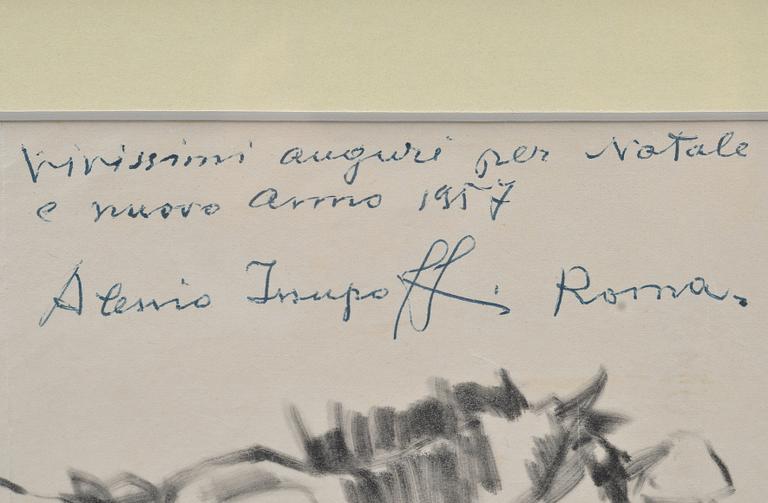 Vivissimi auguri per Natale
e nuovo anno 1957
Alessio Issupoff. Roma.